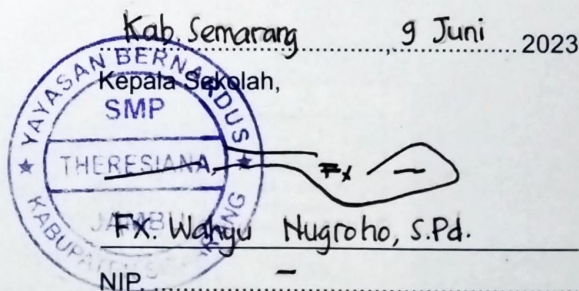 Kab. Semarang, 9 Juni 2023
Kepala Sekolah,
YAYASAN BERNARDUS
SMP
THERESIANA
KABUPATEN SEMARANG
Fx
FX. Wahyu Nugroho, S.Pd.
NIP. -